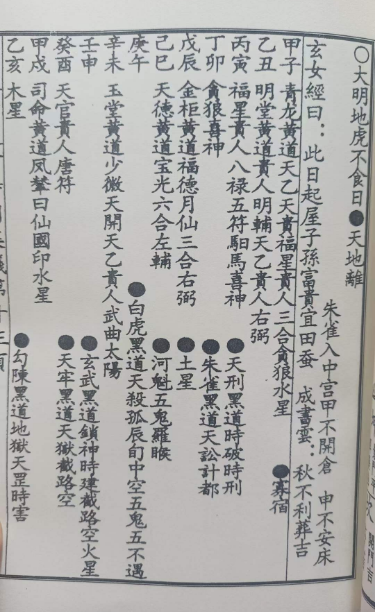 ○大明地虎不食日●天地離
朱雀入中宫甲不開倉 申不安床
玄女經曰：此日起屋子孫富貴宜田蚕 成書雲：秋不利葬吉
甲子 青龙黄道天乙天贵福星貴人三合貪狼水星 ●寡宿
乙丑 明堂黄道貴人明輔天乙貴人右弼
丙寅 福星貴人八禄五符馹馬喜神 ●天刑黑道時破時刑
丁卯 貪狼喜神 ●朱雀黑道天訟計都
戊辰 金柜黄道福德月仙三合右弼 ●土星
己巳 天德黄道宝光六合左輔 ●河魁五鬼羅睺
庚午 ●白虎黑道天殺孤辰旬中空五鬼五不遇
辛未 玉堂黄道少微天開天乙貴人武曲太陽
壬申 ●玄武黑道鎖神時建截路空火星
癸酉 天官貴人唐符 ●天牢黑道天獄截路空
甲戌 司命黄道凤輦曰仙國印水星
乙亥 木星 ●勾陳黑道地獄天罡時害